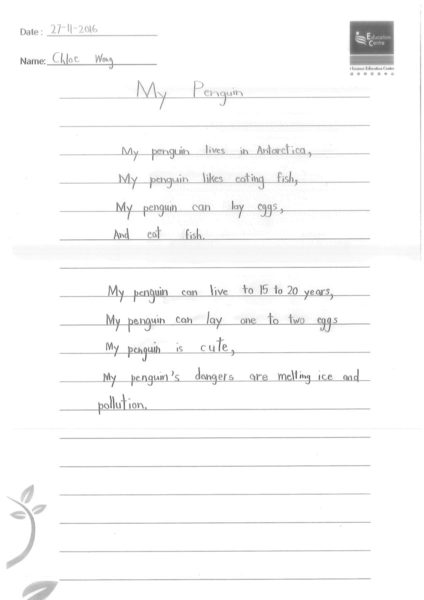 Date : 27-11-2016
Education
Centre
Name: Chloe Wong
My Penguin
My penguin lives in Antarctica,
My penguin likes eating fish,
My penguin can lay eggs,
And eat fish.
My penguin can live to 15 to 20 years,
My penguin can lay one to two eggs
My penguin is cute,
My penguin's dangers are melting ice and
pollution.